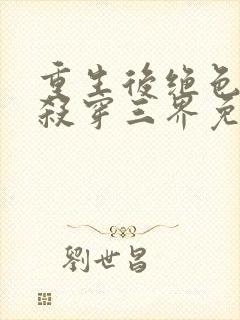 重生後絕色
殺穿三界免
劉世昌